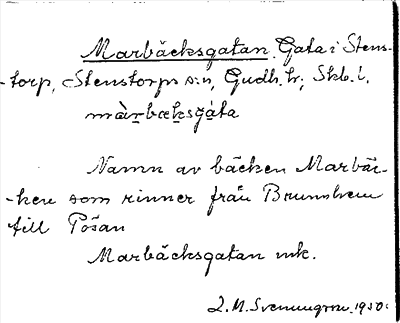 Marbäcksgatan. Gata i Stens-
-torp, Stenstorps sn, Gudh. hr; Skb. l.
màrbæksgáta
Namn av bäcken Marbäc-
-ken som rinner från Brunnhem
till Pösan
Marbäcksgatan mk.
L.M. Svenungson. 1950.